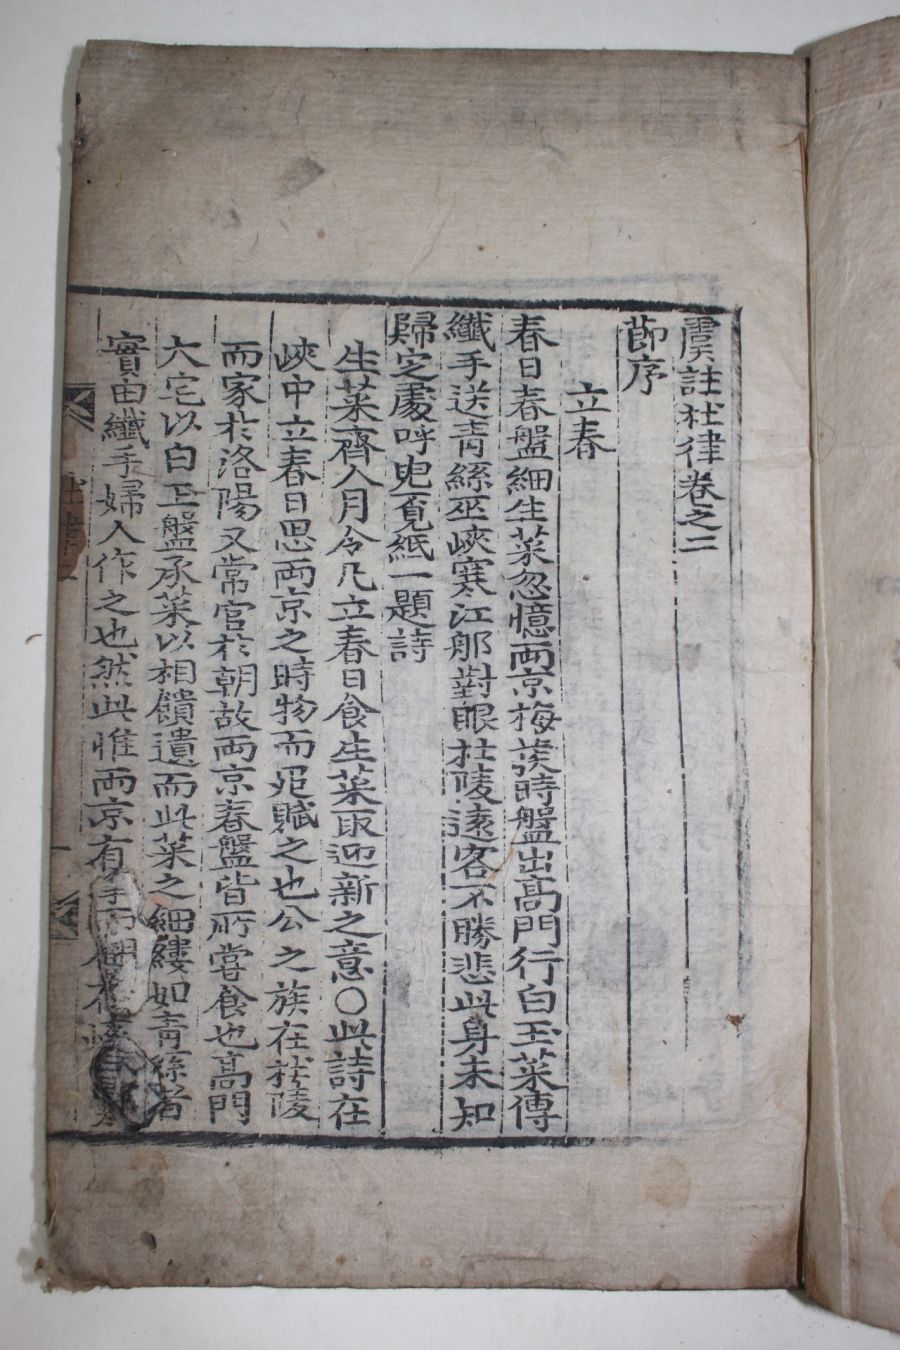 虞註杜律卷之二
節序
立春
春日春盤細生菜忽憶兩京梅發時盤出高門行白玉菜傳
纖手送靑絲巫峽寒江那對眼杜陵遠客不勝悲此身未知
歸定處呼兒覓紙一題詩
生菜齊人月令凡立春日食生菜取迎新之意○此詩在
峽中立春日思兩京之時物而起賦之也公之族在杜陵
而家於洛陽又常官於朝故兩京春盤皆所嘗食也高門
大宅以白玉盤承菜以相饋遺而此菜之細縷如靑絲者
實由纖手婦人作之也然此惟兩京有